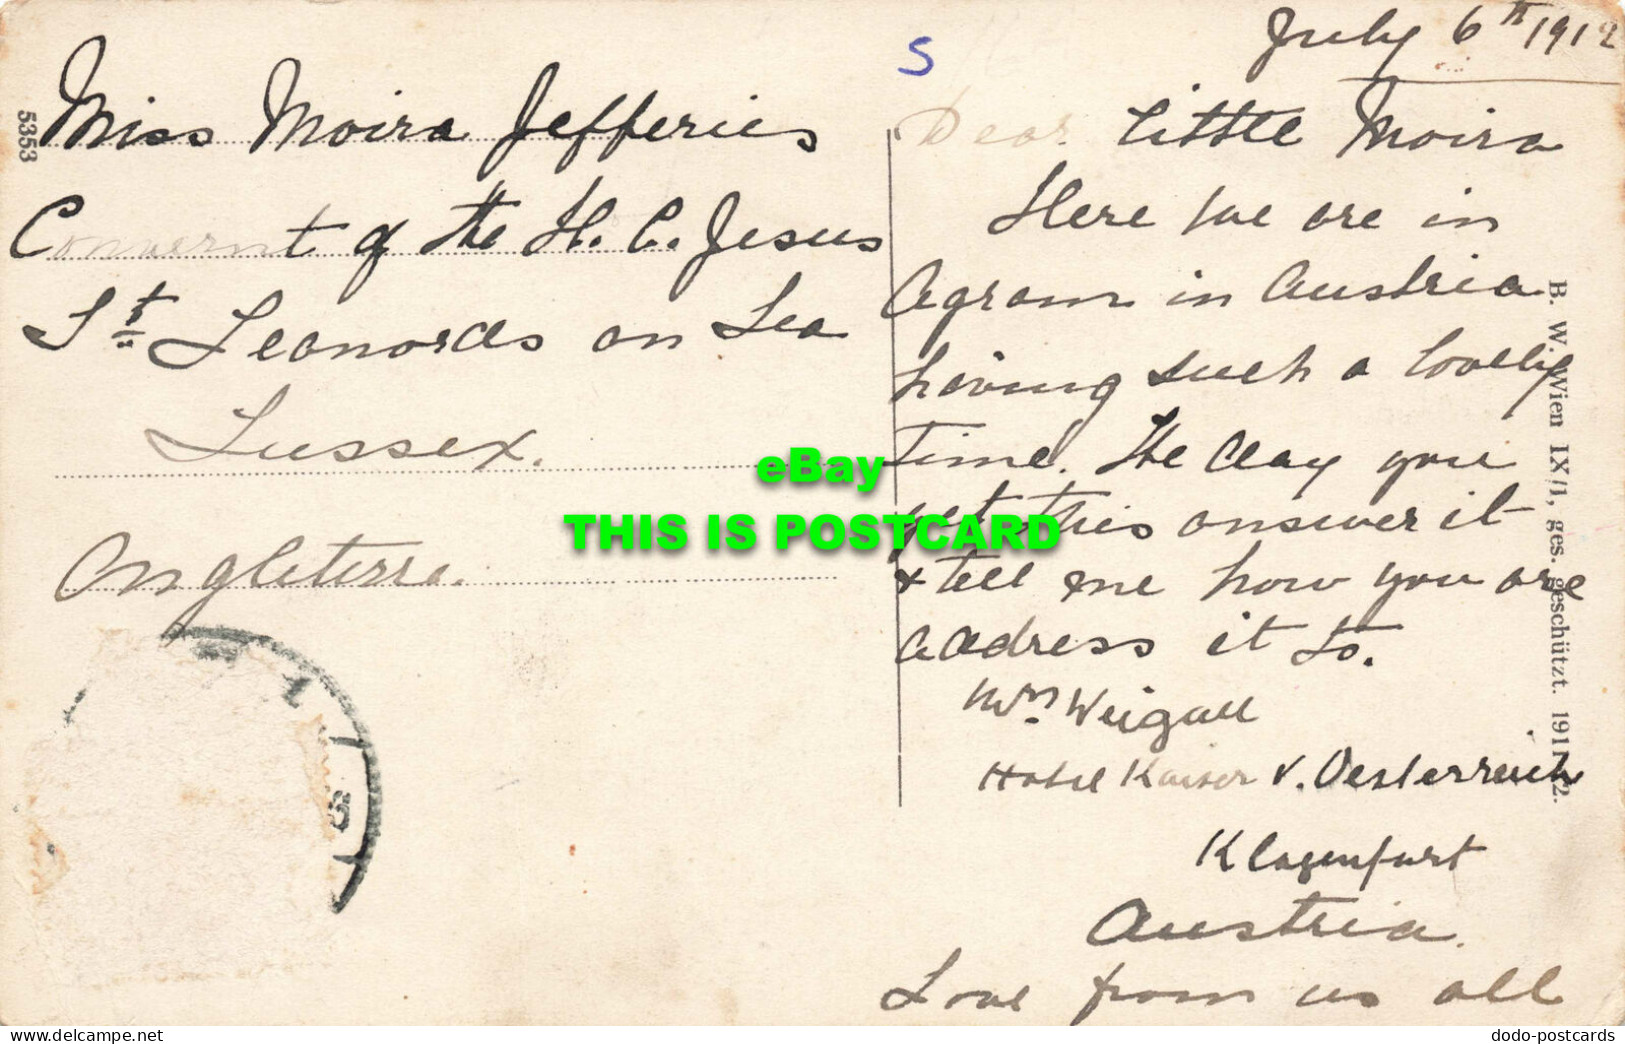 July 6th 1912
S
5353
Miss Moira Jefferies
Convernt of the H. C. Jesus
St. Leonards on Sea
Sussex.
Angleterre.
Dear little Moira
Here we are in
Agram in Austria
having such a lovely
time. The day you
get this answer it
& tell me how you are
address it to.
Mrs Weigall
Hotel Kaiser v. Oesterreich
Klagenfurt
Austria.
Love from us all
B. W. Wien IX/1, ges. geschützt. 1911/12.
eBay
THIS IS POSTCARD
delcampe.net
dodo-postcards